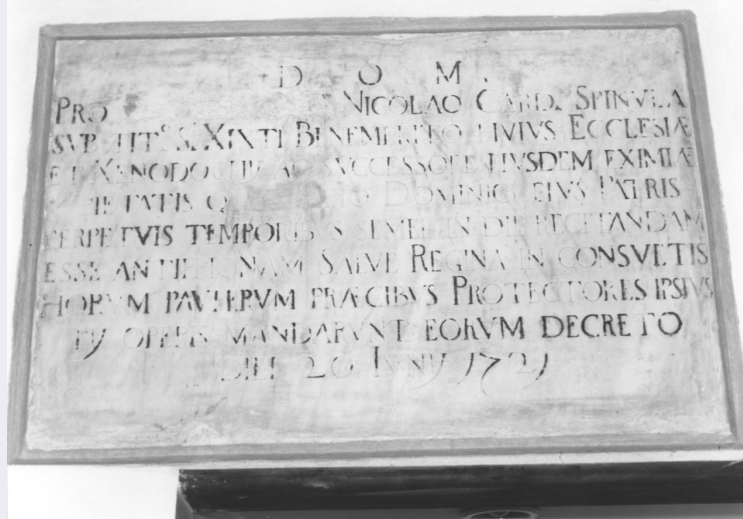 D O M
PRO NICOLAO CARD. SPINVLA
SVB TIT. S. XIXTI BENEMERITO HVIVS ECCLESIÆ
ET XENODOCHII AC SVCCESSORE EIVSDEM EXIMIÆ
PIETATIS DOMINICI EIVS PATRIS
PERPETVIS TEMPORIBVS SEMEL IN DIE RECITANDAM
ESSE ANTIPHONAM SALVE REGINA IN CONSVLTIS
HORVM PAVPERVM PRÆCIBVS PROTECTORES IPSIVS
OPERIS MANDARVNT EORVM DECRETO
DIEI 20 IVNII 1721